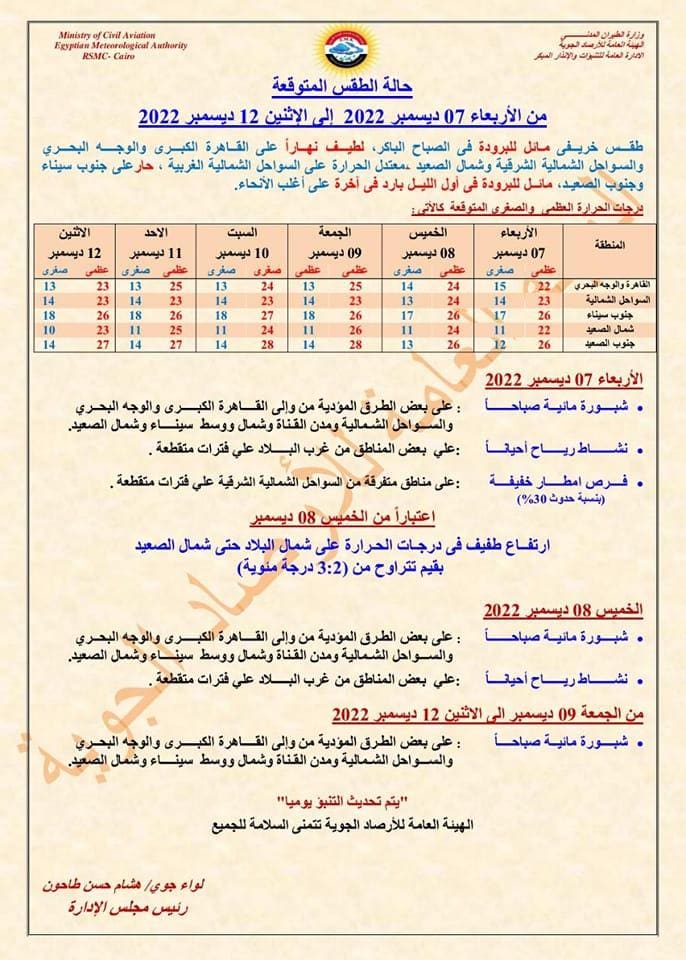 Ministry of Civil Aviation
Egyptian Meteorological Authority
RSMC- Cairo
وزارة الطيران المدنـــي
الهيئة العامة للأرصاد الجوية
الادارة العامة للتنبؤات والإنذار المبكر
حالة الطقس المتوقعة
من الأربعاء 07 ديسمبر 2022 إلى الإثنين 12 ديسمبر 2022
طقـس خريـفى مـائل للبرودة فى الصباح الباكر، لطيـف نهـاراً على القـاهرة الكبـرى والوجـه البحـري
والسـواحل الشمالية الشرقية وشمال الصعيد ،معتدل الحرارة على السواحل الشمالية الغربية ، حار على جنوب سيناء
وجنوب الصعيـد، مـائـل للبرودة فى أول الليـل بـارد فـى أخرة على أغلب الأنحـاء.
درجات الحرارة العظمي والصغرى المتوقعة كالآتى:
المنطقة الأربعاء 07 ديسمبر الخميس 08 ديسمبر الجمعة 09 ديسمبر السبت 10 ديسمبر الاحد 11 ديسمبر الاثنين 12 ديسمبر
عظمى صغرى عظمى صغرى عظمى صغرى عظمى صغرى عظمى صغرى عظمى صغرى
القاهرة والوجه البحري 22 15 24 14 25 13 24 13 25 13 23 13
السواحل الشمالية 23 14 24 14 23 13 23 14 23 14 23 14
جنوب سيناء 26 17 26 17 26 18 27 18 26 18 26 18
شمال الصعيد 22 11 24 11 26 11 24 11 25 11 23 10
جنوب الصعيد 26 12 26 13 28 14 28 14 27 14 27 14
الأربعاء 07 ديسمبر 2022
• شبـورة مائيـة صباحـاً : على بعض الطرق المؤدية من وإلى القـاهرة الكبـرى والوجه البحـري
والســواحل الشمـالية ومدن القـناة وشمال ووسط سينـاء وشمال الصعيد.
• نشـاط ريـاح أحيانـاً :علي بعض المناطق من غرب البـلاد علي فترات متقطعة .
• فـرص امطـار خفيفـة :على مناطق متفرقة من السواحل الشمالية الشرقية علي فترات متقطعة .
(بنسبة حدوث 30%)
اعتبـاراً من الخميس 08 ديسمبر
ارتفـاع طفيف فى درجـات الحـرارة على شمال البلاد حتى شمال الصعيد
بقيم تتراوح من (3:2 درجة مئوية)
الخميس 08 ديسمبر 2022
• شبـورة مائيـة صباحـاً : على بعض الطرق المؤدية من وإلى القـاهرة الكبـرى والوجه البحـري
والســواحل الشمـالية ومدن القـناة وشمال ووسط سينـاء وشمال الصعيد.
• نشـاط ريـاح أحيانـاً :علي بعض المناطق من غرب البـلاد علي فترات متقطعة .
من الجمعة 09 ديسمبر الى الاثنين 12 ديسمبر 2022
• شبـورة مائيـة صباحـاً : على بعض الطرق المؤدية من وإلى القـاهرة الكبـرى والوجه البحـري
والســواحل الشمـالية ومدن القـناة وشمال ووسط سينـاء وشمال الصعيد.
"يتم تحديث التنبؤ يوميا"
الهيئة العامة للأرصاد الجوية تتمنى السلامة للجميع
لواء جوي/ هشام حسن طاحون
رئيس مجلس الإدارة
الهيئة العامة للأرصاد الجوية